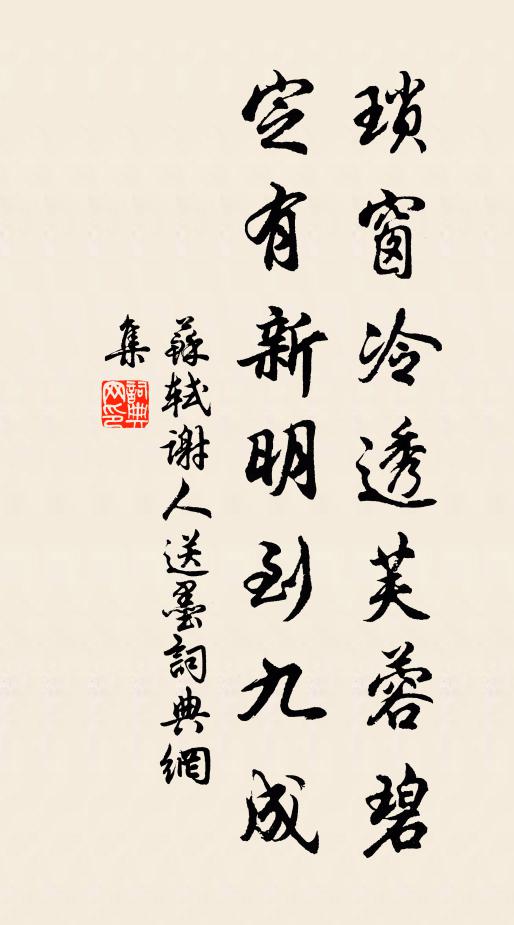 瑣窗冷透芙蓉碧
定有新明到九成
蘇軾謝人送墨詞典網
集
詞典网印